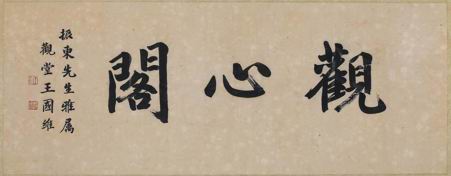 觀心閣
振東先生雅属
觀堂王國維